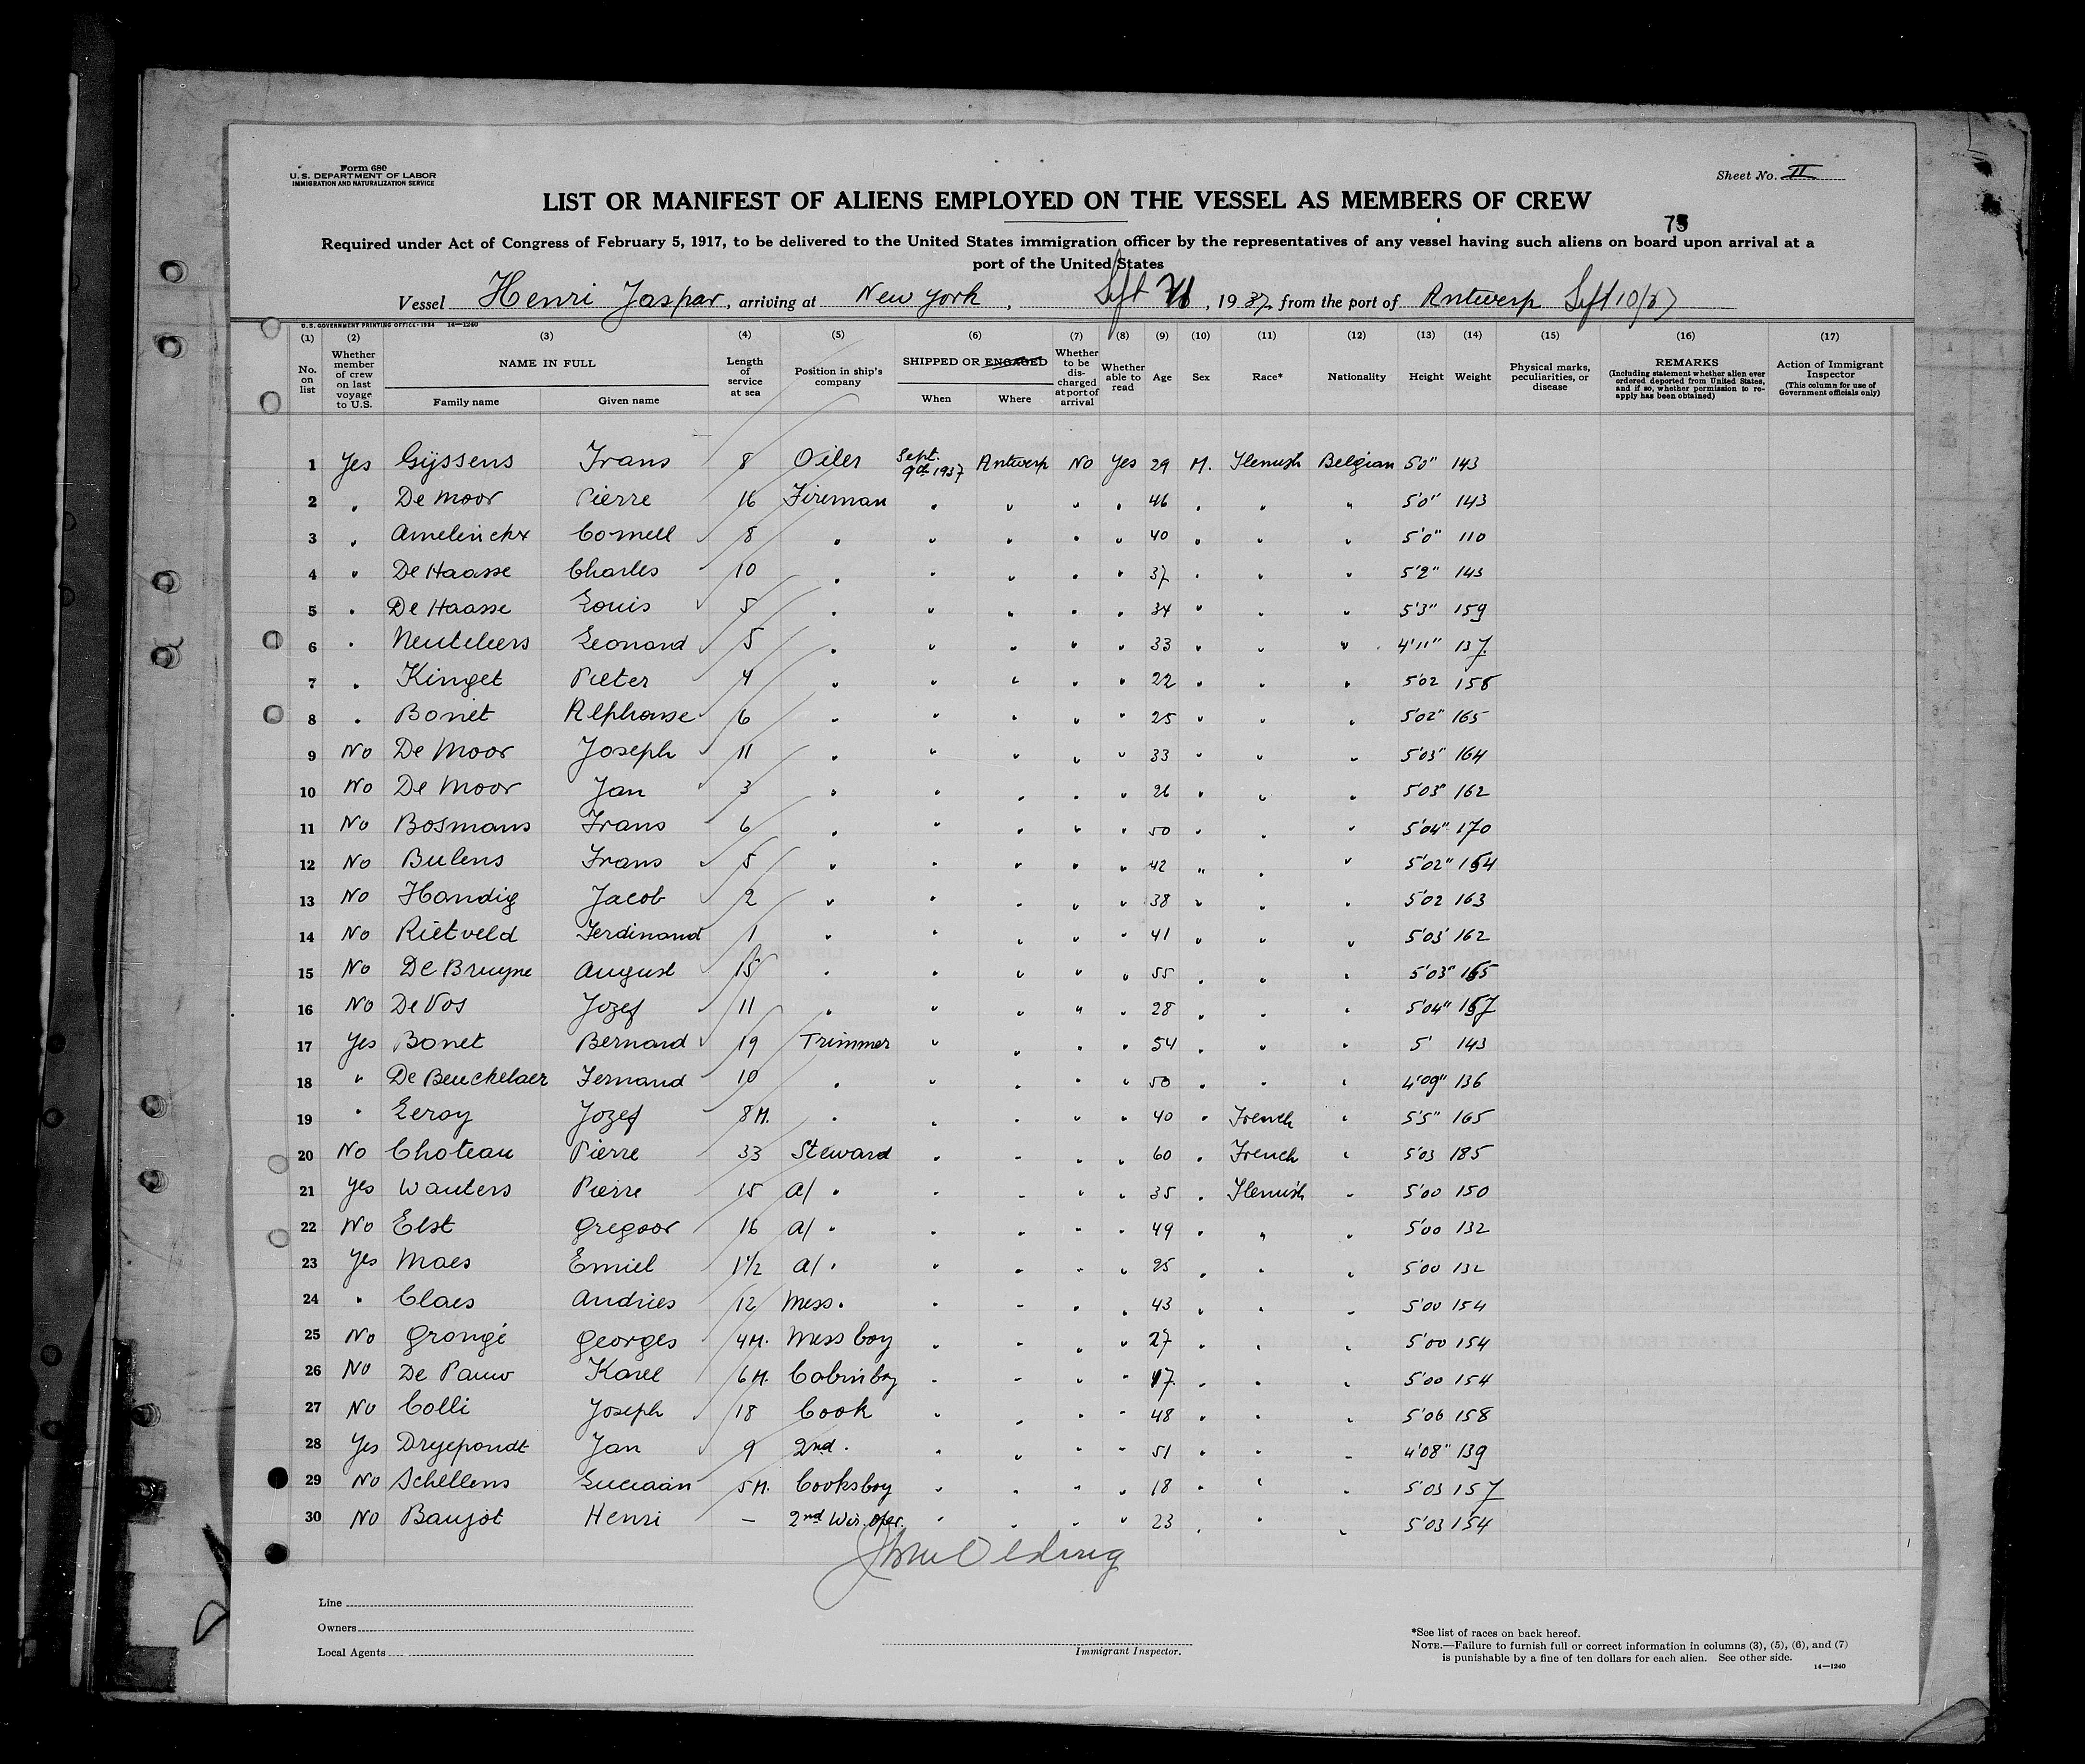 Form 680
U.S. DEPARTMENT OF LABOR
IMMIGRATION AND NATURALIZATION SERVICE
Sheet No. II
LIST OR MANIFEST OF ALIENS EMPLOYED ON THE VESSEL AS MEMBERS OF CREW
Required under Act of Congress of February 5, 1917, to be delivered to the United States immigration officer by the representatives of any vessel having such aliens on board upon arrival at a
port of the United States
Vessel Henri Jaspar, arriving at New York, Sept 21, 1937 from the port of Antwerp Sept 10/37
U.S. GOVERNMENT PRINTING OFFICE: 1934 14—1240
(1) (2) (3) (4) (5) (6) (7) (8) (9) (10) (11) (12) (13) (14) (15) (16) (17)
No. on list
Whether member of crew on last voyage to U.S.
NAME IN FULL
Family name
Given name
Length of service at sea
Position in ship's company
SHIPPED OR ENGAGED
When
Where
Whether to be discharged at port of arrival
Whether able to read
Age
Sex
Race*
Nationality
Height
Weight
Physical marks, peculiarities, or disease
REMARKS
(Including statement whether alien ever ordered deported from United States, and if so, whether permission to re-apply has been obtained)
Action of Immigrant Inspector
(This column for use of Government officials only)
1 Yes Gijssens Frans 8 Oiler Sept. 9th 1937 Antwerp No Yes 29 M. Flemish Belgian 5'0" 143
2 " De Moor Pierre 16 Fireman " " " " 46 " " " 5'0" 143
3 " Amelinckx Cornell 8 " " " " " 40 " " " 5'0" 110
4 " De Haasse Charles 10 " " " " " 37 " " " 5'2" 143
5 " De Haasse Louis 5 " " " " " 34 " " " 5'3" 159
6 " Neuteleers Leonard 5 " " " " " 33 " " " 4'11" 137
7 " Kinget Pieter 4 " " " " " 22 " " " 5'02 158
8 " Bonet Alphonse 6 " " " " " 25 " " " 5'02" 165
9 No De Moor Joseph 11 " " " " " 33 " " " 5'03" 164
10 No De Moor Jan 3 " " " " " 26 " " " 5'03" 162
11 No Bosmans Frans 6 " " " " " 50 " " " 5'04" 170
12 No Bulens Frans 5 " " " " " 42 " " " 5'02" 164
13 No Handig Jacob 2 " " " " " 38 " " " 5'02 163
14 No Rietveld Ferdinand 1 " " " " " 41 " " " 5'03' 162
15 No De Bruyne August 15 " " " " " 55 " " " 5'03" 165
16 No De Vos Jozef 11 " " " " " 28 " " " 5'04" 167
17 Yes Bonet Bernard 19 Trimmer " " " " 54 " " " 5' 143
18 " De Beuckelaer Fernand 10 " " " " " 50 " " " 4'09" 136
19 " Leroy Jozef 8 M. " " " " " 40 " French " 5'5" 165
20 No Choteau Pierre 33 Steward " " " " 60 " French " 5'03 185
21 Yes Wauters Pierre 15 a/ " " " " " 35 " Flemish " 5'00 150
22 No Elst Gregoor 16 a/ " " " " " 49 " " " 5'00 132
23 Yes Maes Emiel 1 1/2 a/ " " " " " 25 " " " 5'00 132
24 " Claes Andries 12 Mess. " " " " 43 " " " 5'00 154
25 No Grangé Georges 4 M. Mess boy " " " " 27 " " " 5'00 154
26 No De Pauw Karel 6 M. Cabinboy " " " " 17 " " " 5'00 154
27 No Colli Joseph 18 Cook " " " " 48 " " " 5'06 158
28 Yes Dryepondt Jan 9 2nd " " " " " 51 " " " 4'08" 139
29 No Schellens Luciaan 5 M. Cooksboy " " " " 18 " " " 5'03 157
30 No Baujot Henri — 2nd Wir. oper. " " " " 23 " " " 5'03 154
Line
Owners
Local Agents
Immigrant Inspector.
*See list of races on back hereof.
NOTE.—Failure to furnish full or correct information in columns (3), (5), (6), and (7)
is punishable by a fine of ten dollars for each alien. See other side.
14—1240